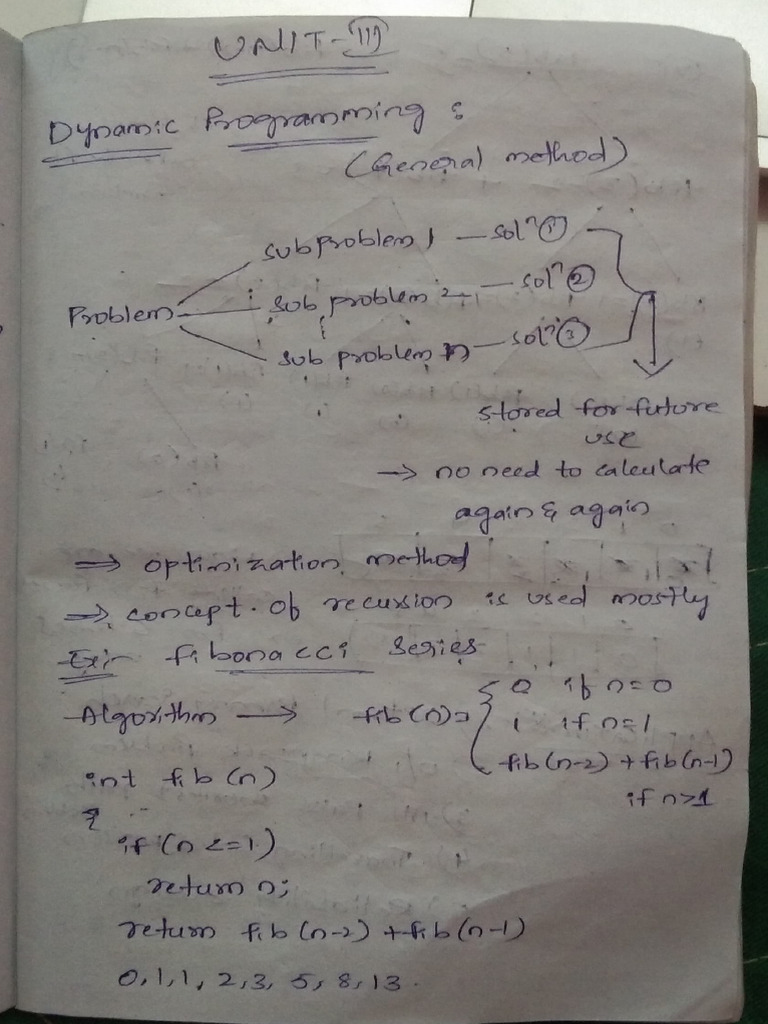 UNIT-III
Dynamic Programming :
(General method)
subproblem 1 — solⁿ ①
Problem
sub problem 2 — solⁿ ②
sub problem n — solⁿ ③
stored for future
use
→ no need to calculate
again & again
⇒ optimization method
⇒ concept of recursion is used mostly
Ex:- fibonacci series
Algorithm → fib(n) = { 0 if n=0
1 if n=1
fib(n-2) + fib(n-1)
if n>1
int fib (n)
{
if (n <= 1)
return n;
return fib (n-2) + fib (n-1)
0, 1, 1, 2, 3, 5, 8, 13.